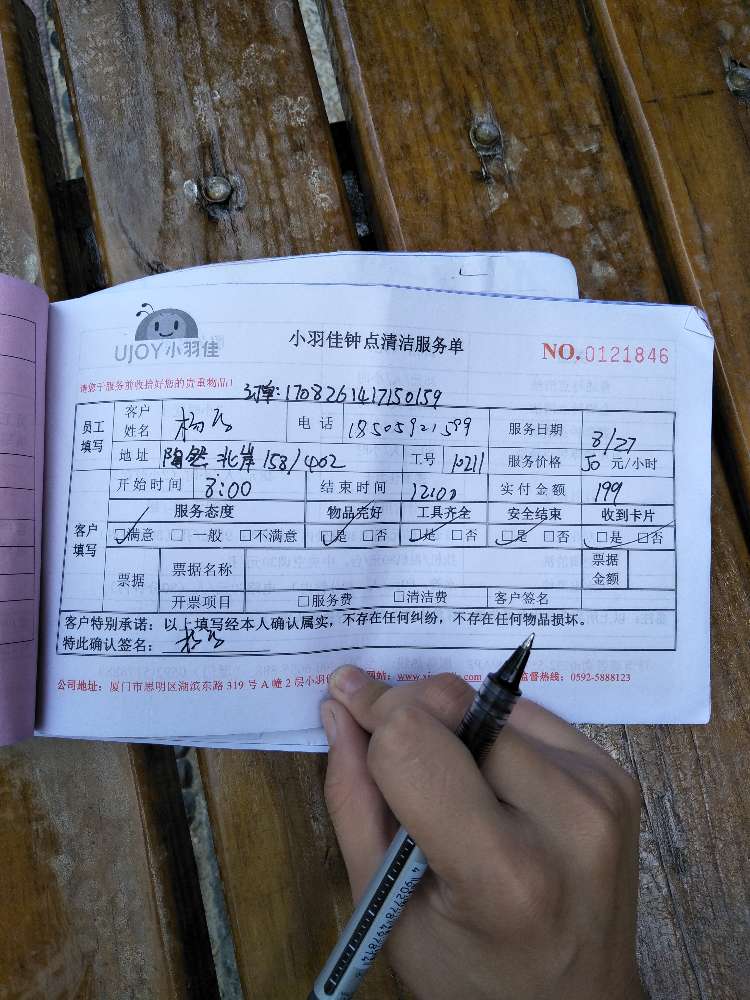 UJOY小羽佳
小羽佳钟点清洁服务单
NO.0121846
请您于服务前收拾好您的贵重物品!
订单:1708261417150159
员工填写 客户姓名 杨 电话 18505921599 服务日期 8/27
地址 陶然北岸158/402 工号 10211 服务价格 50元/小时
客户填写 开始时间 8:00 结束时间 12:00 实付金额 199
服务态度 物品完好 工具齐全 安全结束 收到卡片
□满意 □一般 □不满意 □是 □否 □是 □否 □是 □否 □是 □否
票据 票据名称 票据金额
开票项目 □服务费 □清洁费 客户签名
客户特别承诺:以上填写经本人确认属实,不存在任何纠纷,不存在任何物品损坏。
特此确认签名: 杨
公司地址:厦门市思明区湖滨东路319号A幢2层小羽 网站:www. 监督热线:0592-5888123